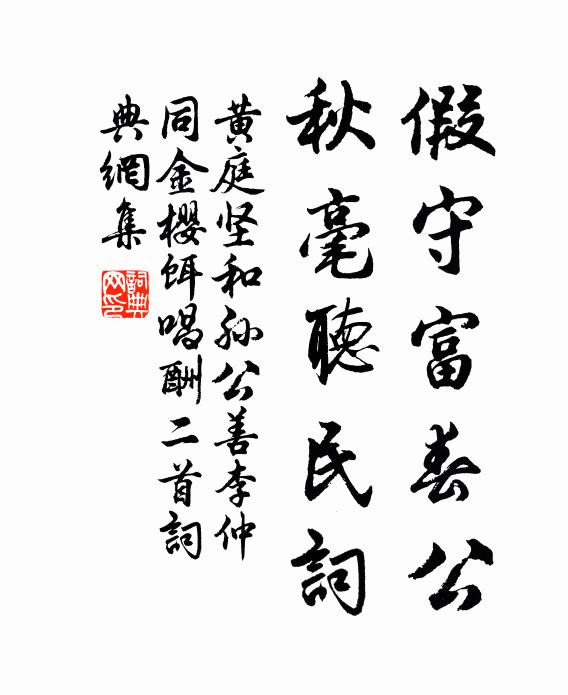 假守富春公
秋毫聽民詞
黄庭坚和孙公善李仲
同金櫻餌唱酬二首詞
典網集
詞典網印